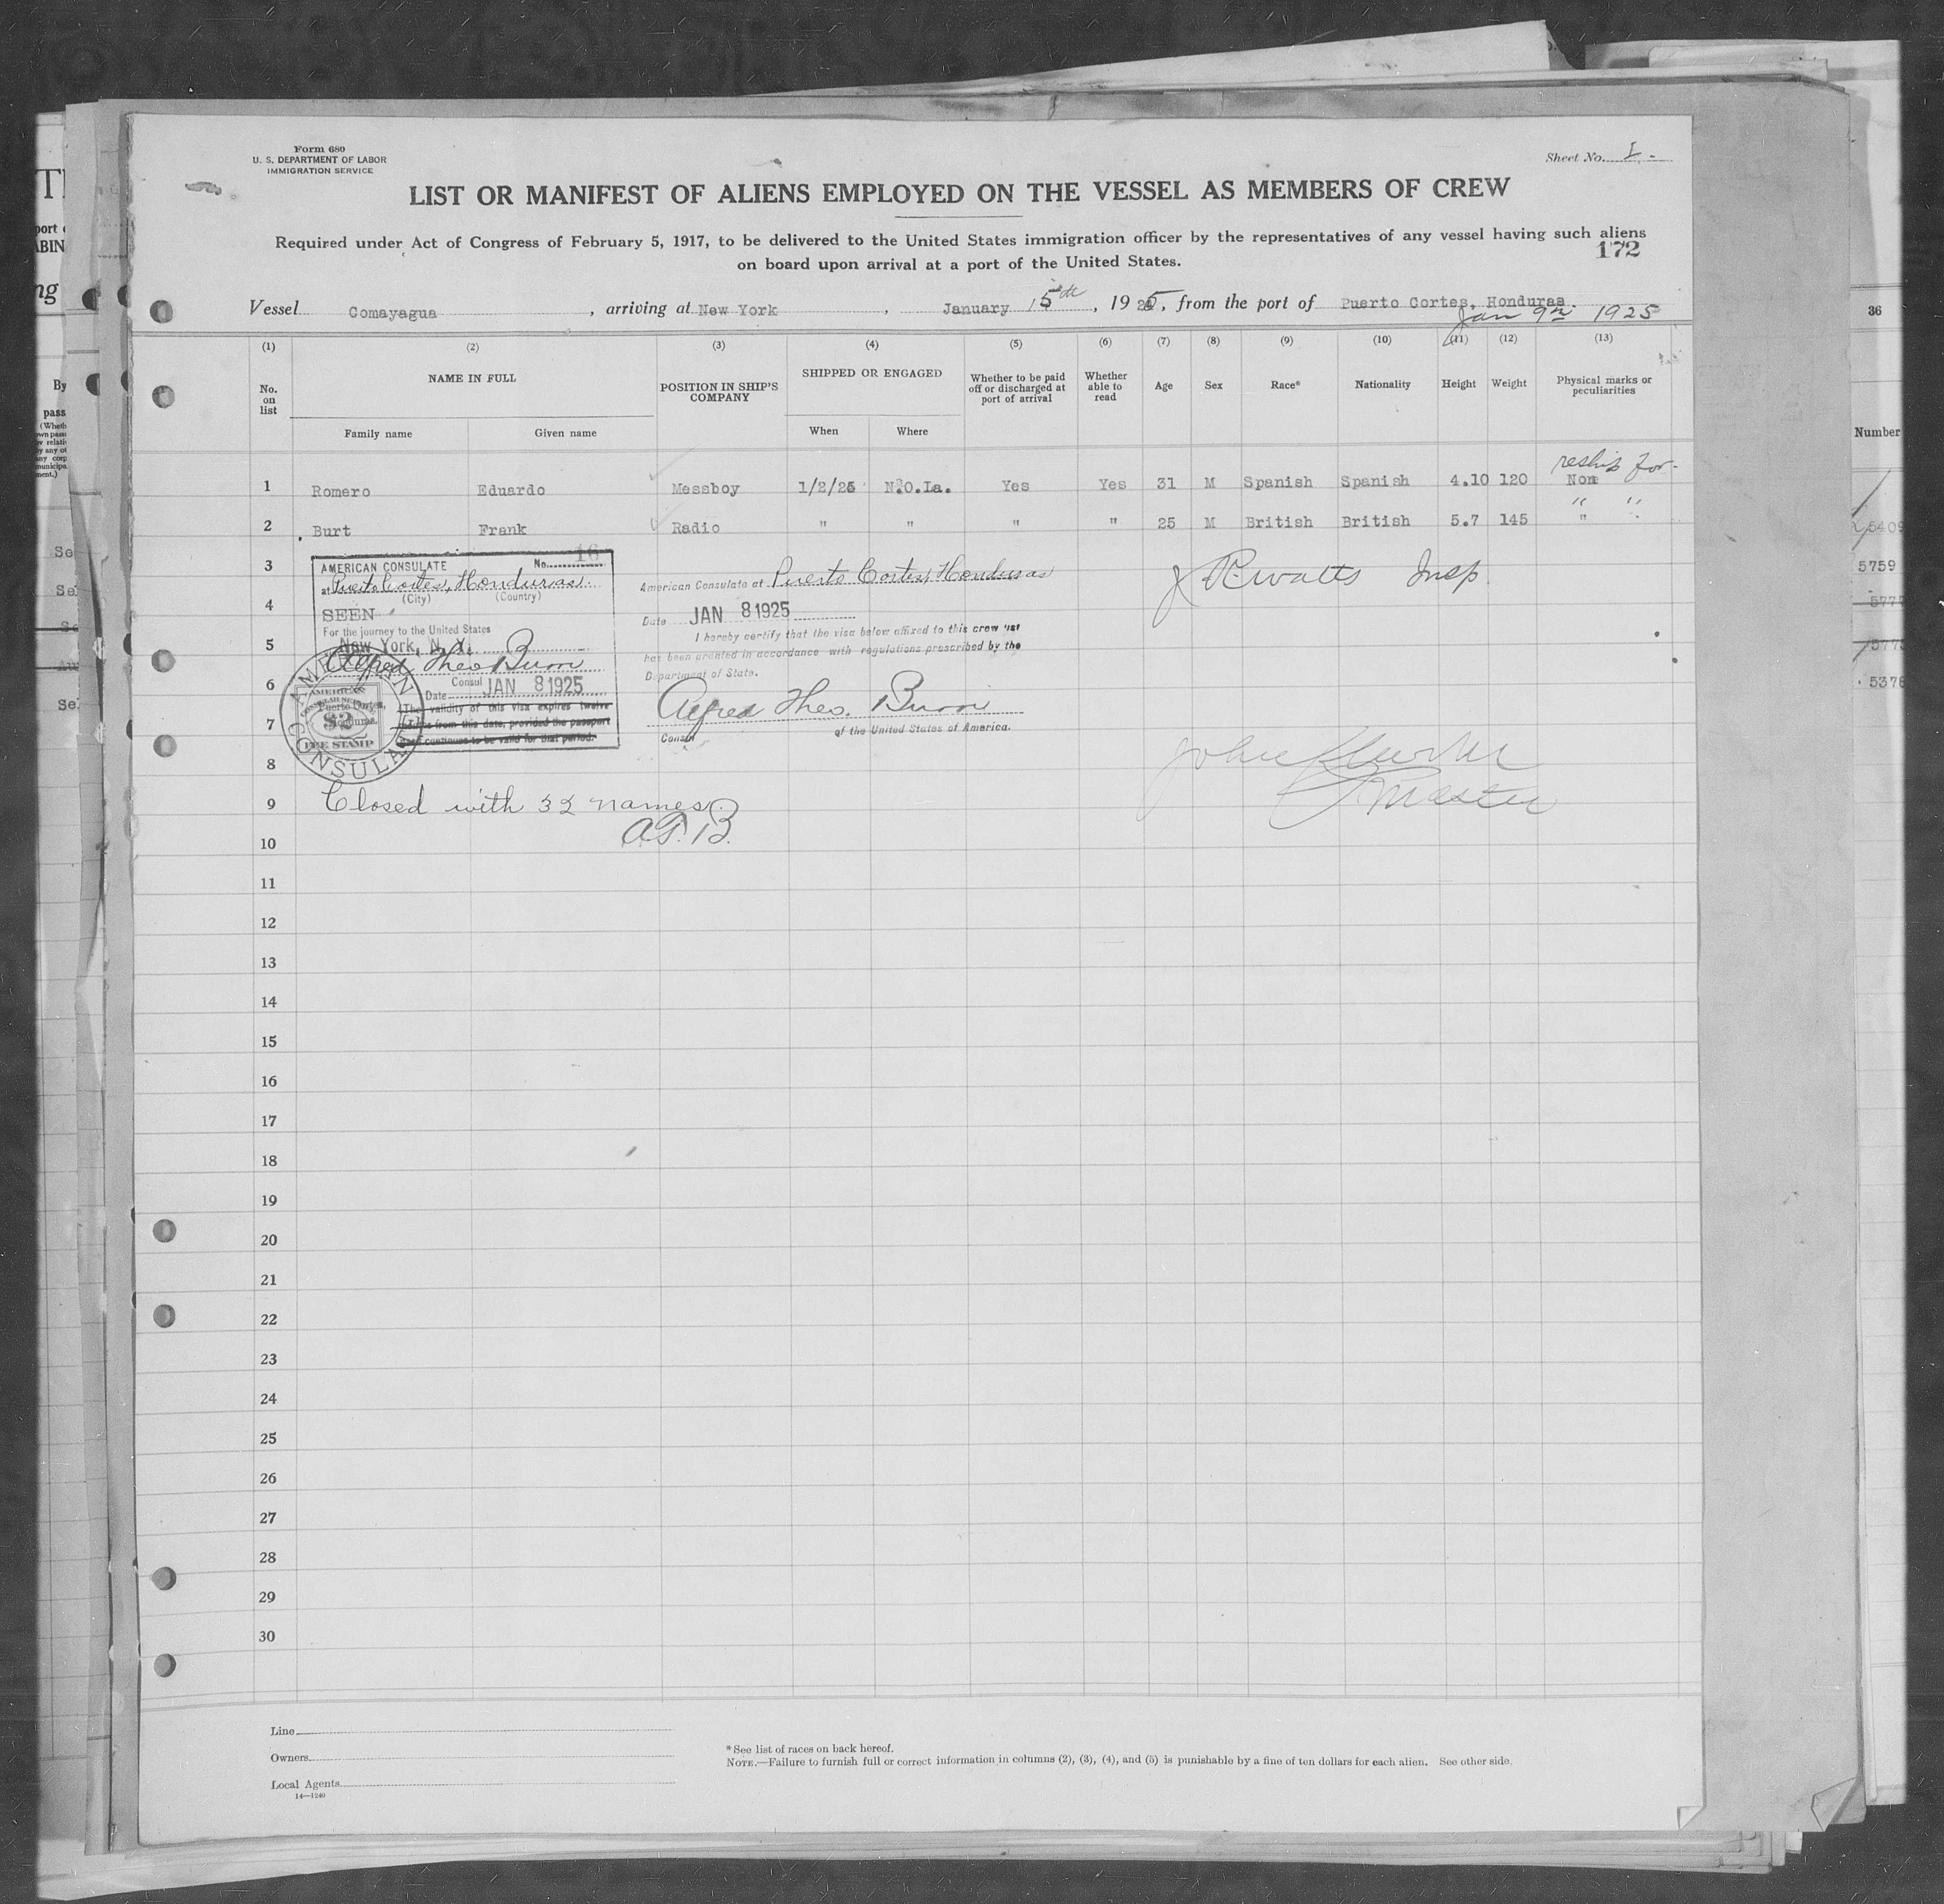 Form 680
U. S. DEPARTMENT OF LABOR
IMMIGRATION SERVICE
Sheet No. 1.
LIST OR MANIFEST OF ALIENS EMPLOYED ON THE VESSEL AS MEMBERS OF CREW
Required under Act of Congress of February 5, 1917, to be delivered to the United States immigration officer by the representatives of any vessel having such aliens
on board upon arrival at a port of the United States.
172
Vessel Comayagua, arriving at New York, January 15th, 1925, from the port of Puerto Cortes, Honduras.
Jan 9th 1925
(1) (2) (3) (4) (5) (6) (7) (8) (9) (10) (11) (12) (13)
No. on list NAME IN FULL POSITION IN SHIP'S COMPANY SHIPPED OR ENGAGED Whether to be paid off or discharged at port of arrival Whether able to read Age Sex Race* Nationality Height Weight Physical marks or peculiarities
Family name Given name When Where
reship for.
1 Romero Eduardo Messboy 1/2/25 N.O.La. Yes Yes 31 M Spanish Spanish 4.10 120 None
" "
2 Burt Frank Radio " " " " 25 M British British 5.7 145 "
3
4
5
6
7
8
9
10
11
12
13
14
15
16
17
18
19
20
21
22
23
24
25
26
27
28
29
30
AMERICAN CONSULATE No. 16
at Puerto Cortes, Honduras.
(City) (Country)
SEEN
For the journey to the United States
New York, N. Y.
Alfred Theo. Burri
Consul
Date JAN 8 1925
The validity of this visa expires twelve
months from this date, provided the passport
itself continues to be valid for that period.
AMERICAN CONSULATE
AMERICAN
Puerto Cortes,
Honduras.
$2
FEE STAMP
American Consulate at Puerto Cortes, Honduras
Date JAN 8 1925
I hereby certify that the visa below affixed to this crew list
has been granted in accordance with regulations prescribed by the
Department of State.
Alfred Theo. Burri
Consul of the United States of America.
Watts Insp.
John
Master
Closed with 32 names.
A.T.B.
Line
Owners
Local Agents
14—1240
*See list of races on back hereof.
NOTE.—Failure to furnish full or correct information in columns (2), (3), (4), and (5) is punishable by a fine of ten dollars for each alien. See other side.
36
Number
5409
5759
5777
5775
5376